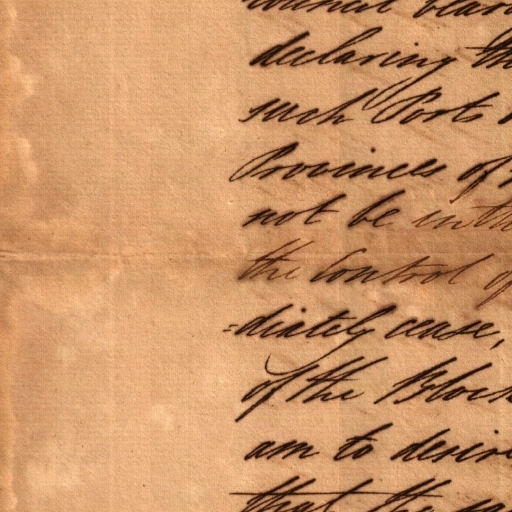 declaring th
such Ports
Provinces of
not be in the
the Control of
=diately cease,
of the Block
am to desire
that the